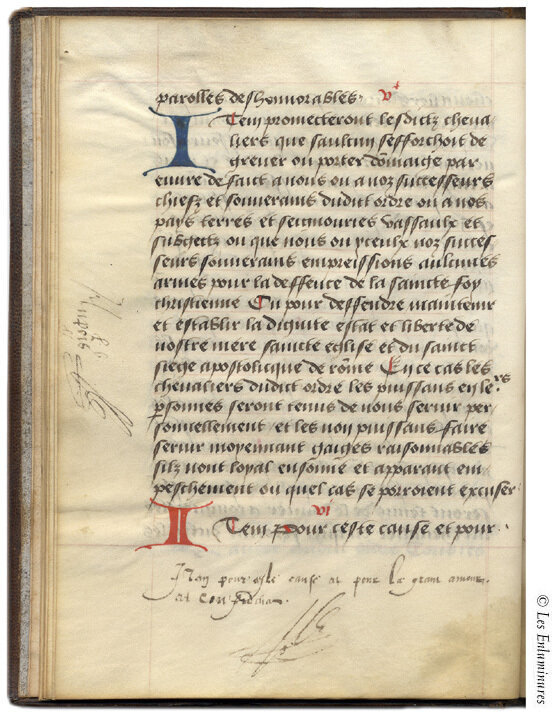 parolles deshonnorables. v
Item promecteront lesdictz cheva
liers que saulcun sefforchoit de
grever ou porter dommaige par
euvre de faict a nous ou a noz successeurs
chiefz et souverains dudict ordre ou a nos
pays terres et seignouries vassaulx et
subgectz ou que nous ou yceulx noz succes
seurs souverains empreissions aulcunes
armes pour la deffence de la saincte foy
christienne Ou pour deffendre maintenir
et establir la dignite estat et liberte de
nostre mere saincte eglise et du sainct
siege apostolicque de rome En ce cas les
chevaliers dudict ordre les puissans en leurs
psonnes seront tenus de nous servir per
sonnellement et les non puissans faire
servir moyennant gaiges raisonnables
silz nont loyal ensonne et apparant em
peschement ou quel cas se porroient excuser
VI
Item Pour ceste cause et pour
Item pour ceste cause et pour la grant amour
et
© Les Enluminures